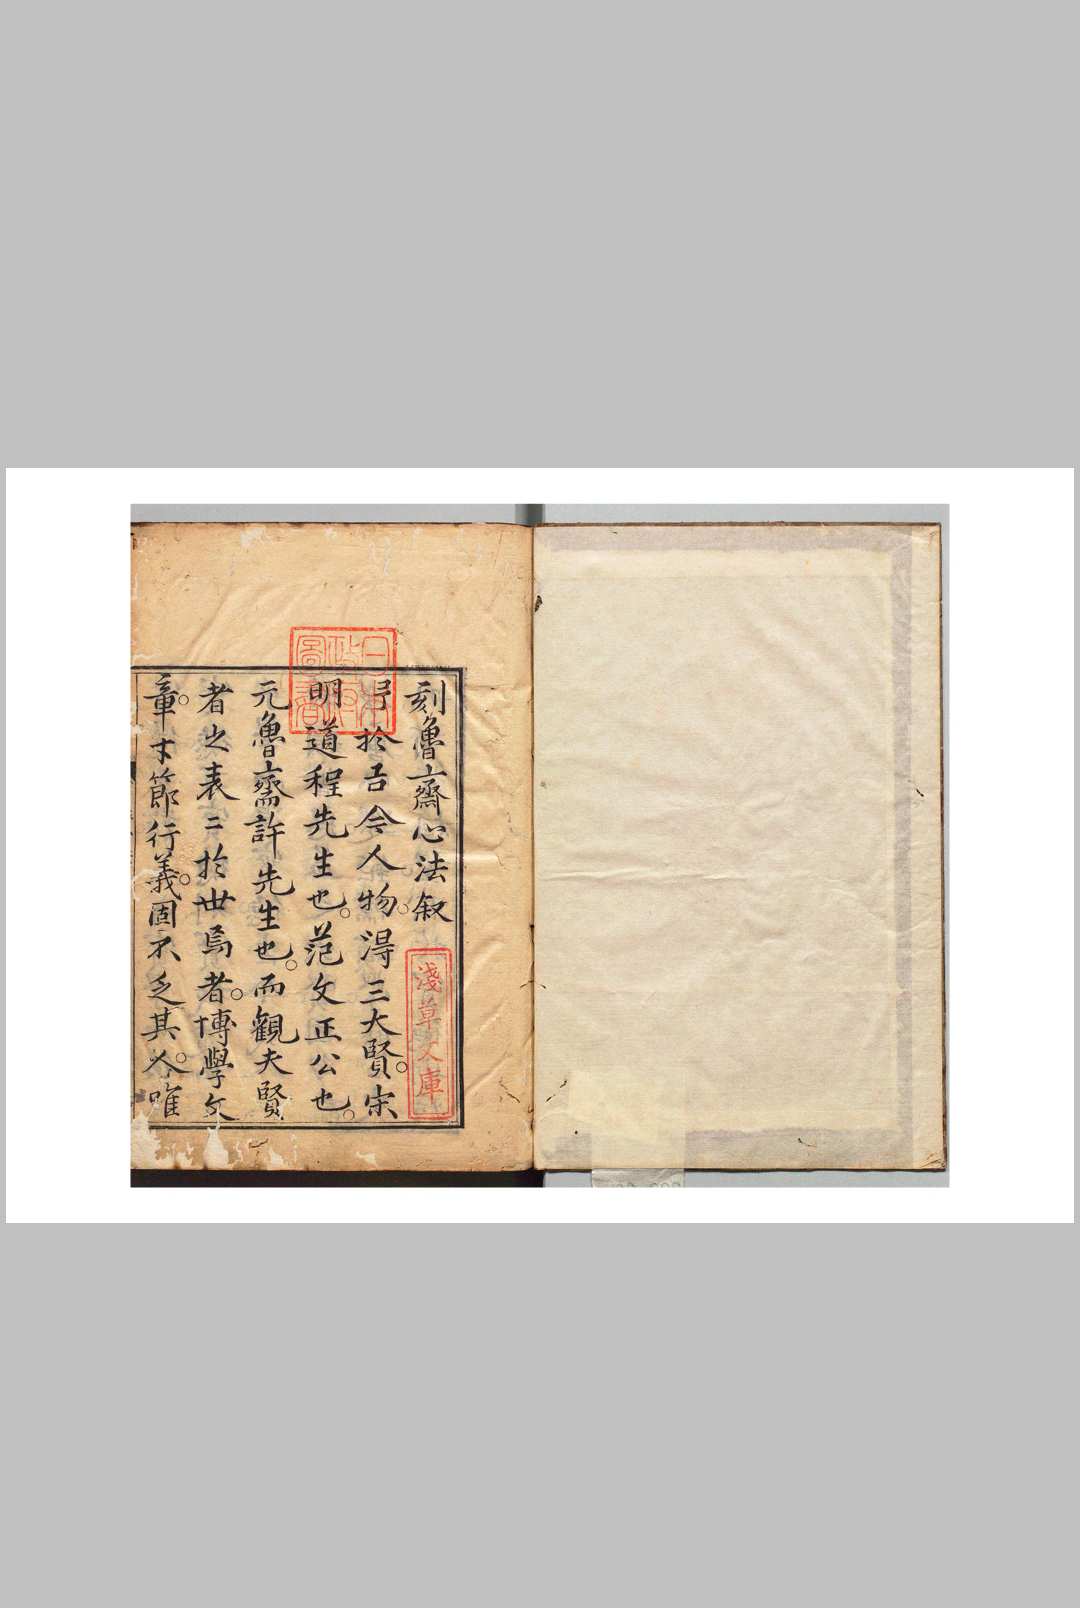 刻魯齋心法叙
予於古今人物得三大賢宋
明道程先生也范文正公也
元魯齋許先生也而觀夫賢
者之表二於世焉者博學文
章才節行義固不乏其人唯
日本政府圖書
淺草文庫